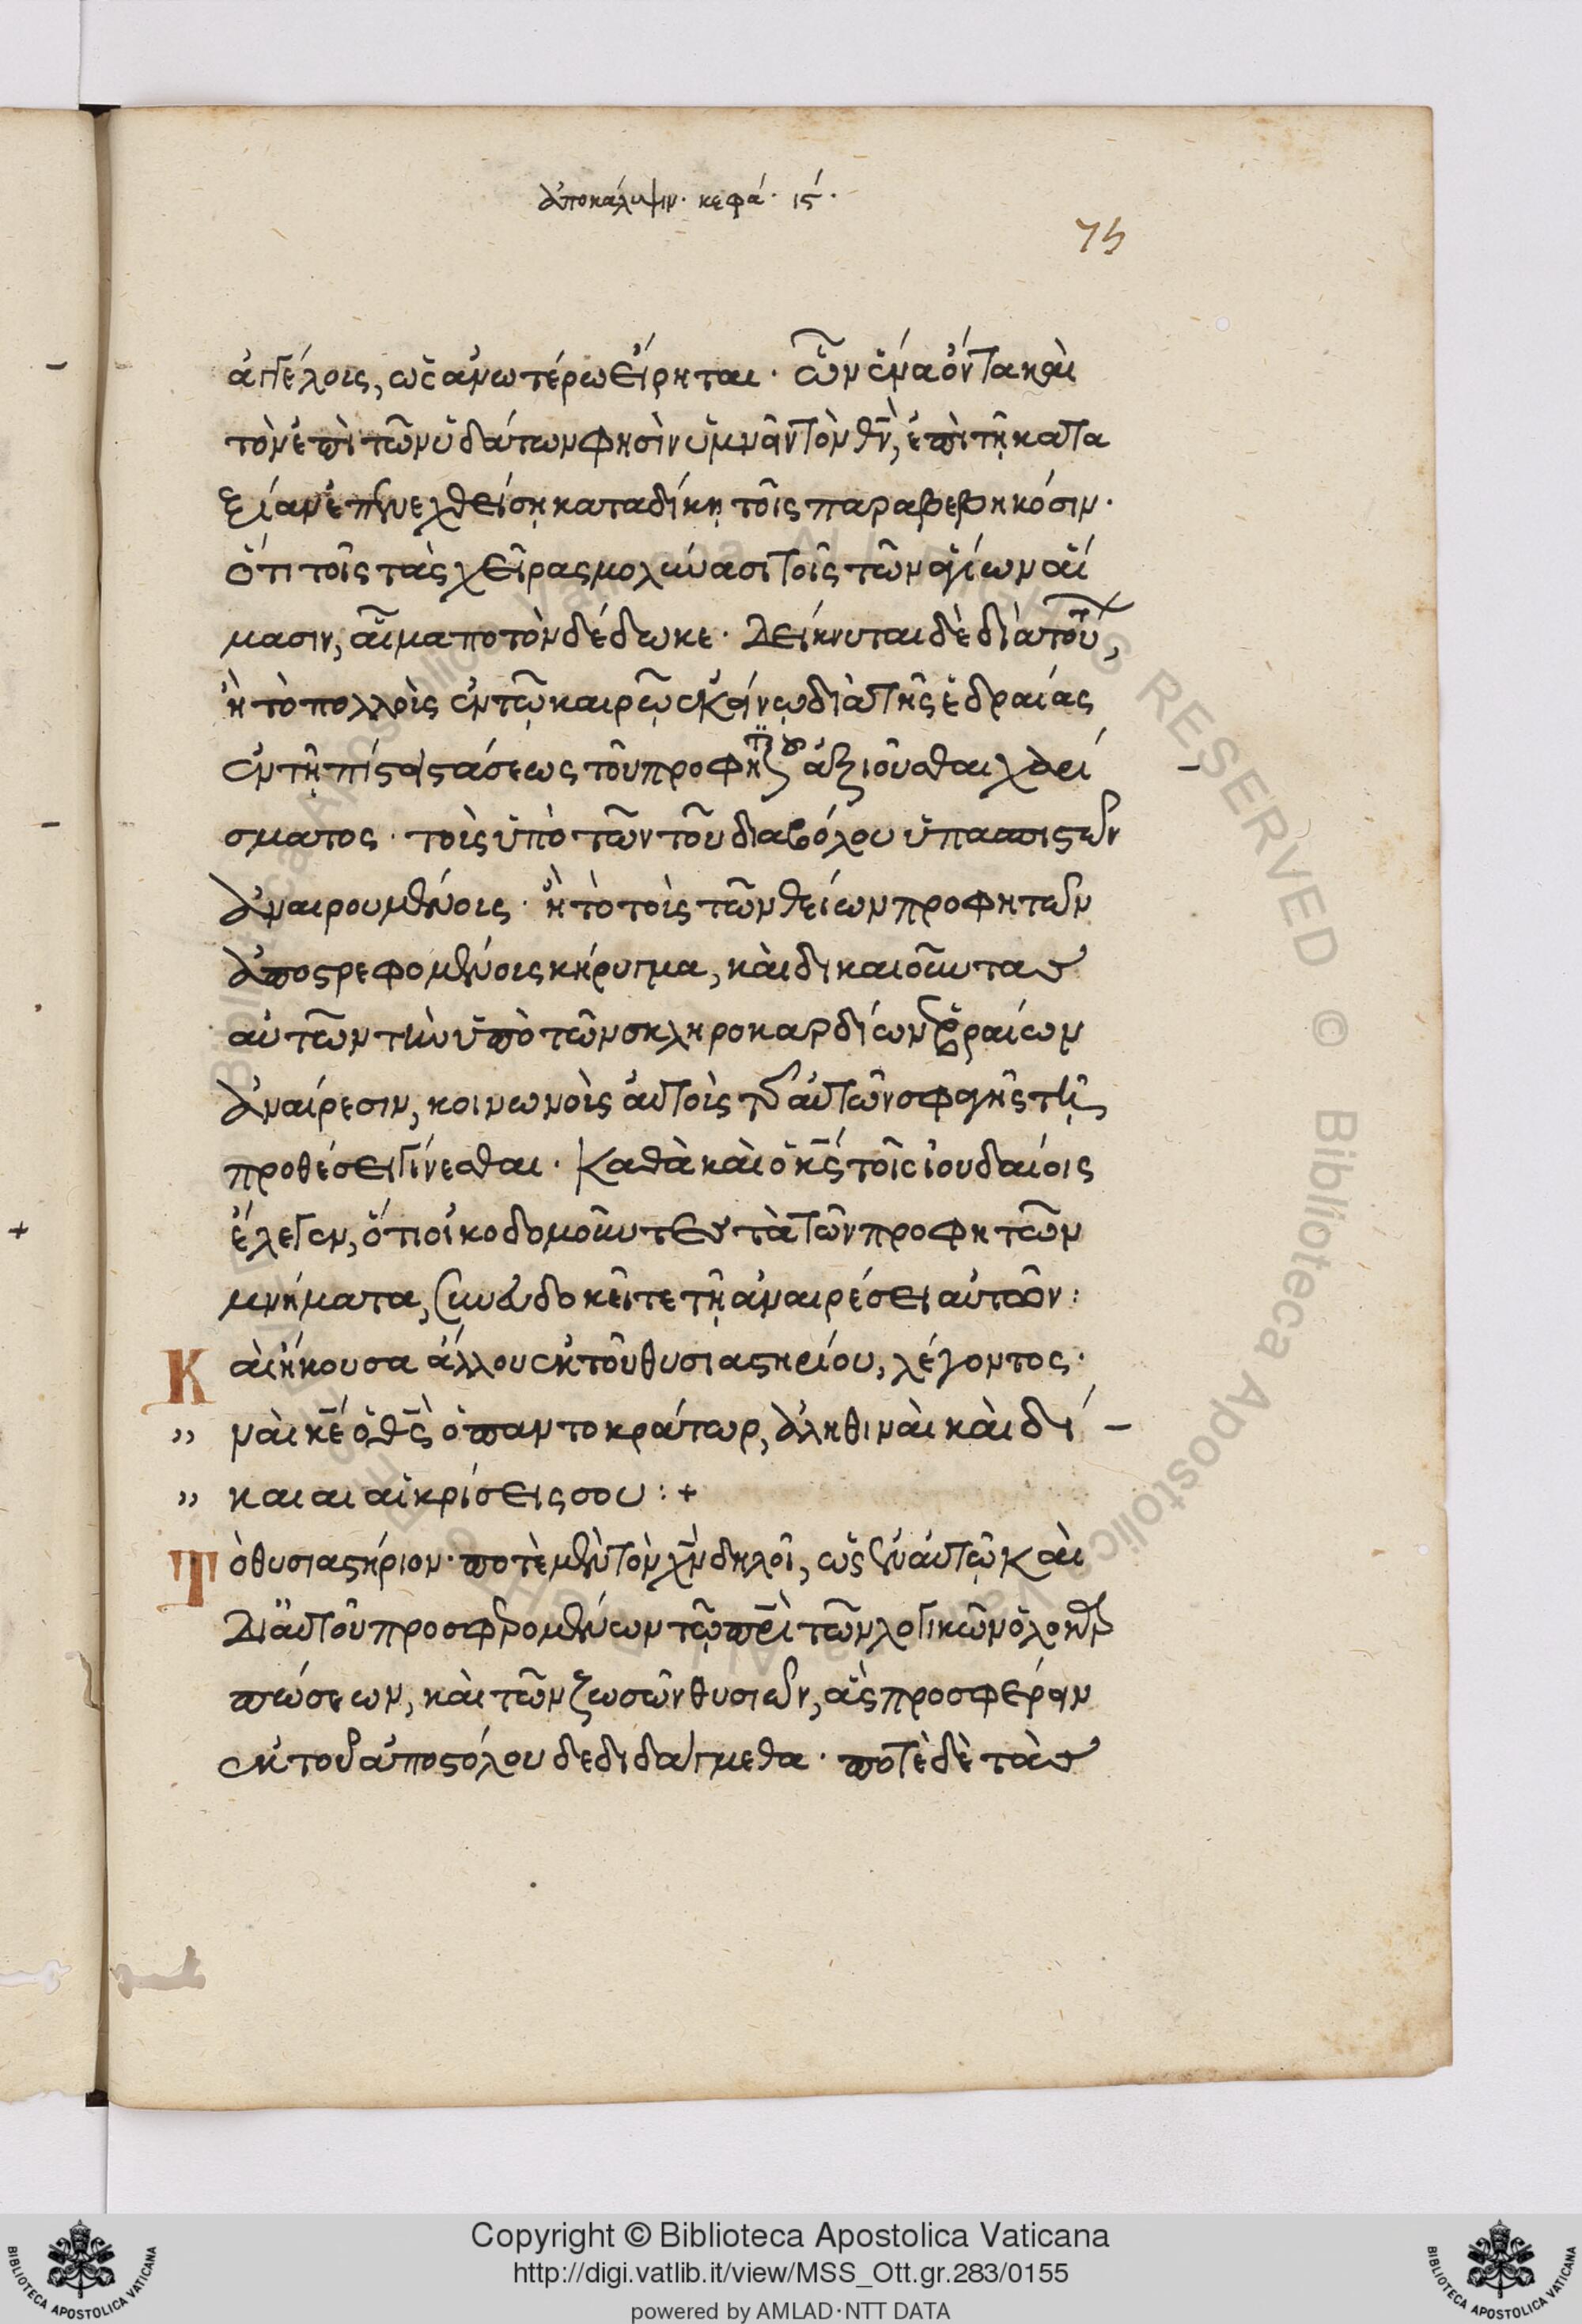 ἀποκάλυψιν. κεφά. ιϛ.
75
ἀγγέλοις, ὡς ἀνωτέρω εἴρηται. ὧν ἕνα ὄντα καὶ
τὸν ἐπὶ τῶν ὑδάτων φησὶν ὑμνεῖν τὸν θν, ἐπὶ τῇ κατα
ξίαν ἐπενεχθείσῃ καταδίκῃ τοῖς παραβεβηκόσιν.
ὅτι τοῖς τὰς χεῖρας μολύνασι τοῖς τῶν ἁγίων αἵ
μασιν, αἷμα ποτὸν δέδωκε. Δείκνυται δὲ διὰ τούτου,
ἢ τὸ πολλοὺς ἐν τῷ καιρῷ ἐκείνῳ διὰ τῆς ἑδραίας
ἐν τῇ πίστει στάσεως τοῦ προφητικοῦ ἀξιοῦσθαι χαρί
σματος. τοὺς ὑπὸ τῶν τοῦ διαβόλου ὑπασπιστῶν
ἀναιρουμένους. ἢ τὸ τοὺς τῶν θείων προφητῶν
ἀποστρεφομένους κήρυγμα, καὶ δικαιοῦντας
αὐτῶν τὴν ὑπὸ τῶν σκληροκαρδίων ἑβραίων
ἀναίρεσιν, κοινωνοὺς αὐτοὺς τῆς αὐτῶν σφαγῆς τῇ
προθέσει γίνεσθαι. Καθὰ καὶ ὁ κς τοῖς ἰουδαίοις
ἔλεγεν, ὅτι οἰκοδομοῦντες τὰ τῶν προφητῶν
μνήματα, συνευδοκεῖτε τῇ ἀναιρέσει αὐτῶν:
Καὶ ἤκουσα ἄλλου ἐκ τοῦ θυσιαστηρίου, λέγοντος.
" ναὶ κε ὁ θς ὁ παντοκράτωρ, ἀληθιναὶ καὶ δί –
" καιαι αἱ κρίσεις σου: +
Τὸ θυσιαστήριον. ποτὲ μὲν τὸν χν δηλοῖ, ὡς ἐν αὐτῷ καὶ
Δι αὐτοῦ προσφερομένων τῷ πρὶ τῶν λογικῶν ὁλοκαρ
πώσεων, καὶ τῶν ζωσῶν θυσιῶν, ἃς προσφέρειν
ἐκ τοῦ ἀποστόλου δεδιδάγμεθα. ποτὲ δὲ τὰς
Copyright © Biblioteca Apostolica Vaticana
http://digi.vatlib.it/view/MSS_Ott.gr.283/0155
powered by AMLAD·NTT DATA
BIBLIOTECA APOSTOLICA VATICANA
BIBLIOTECA APOSTOLICA VATICANA